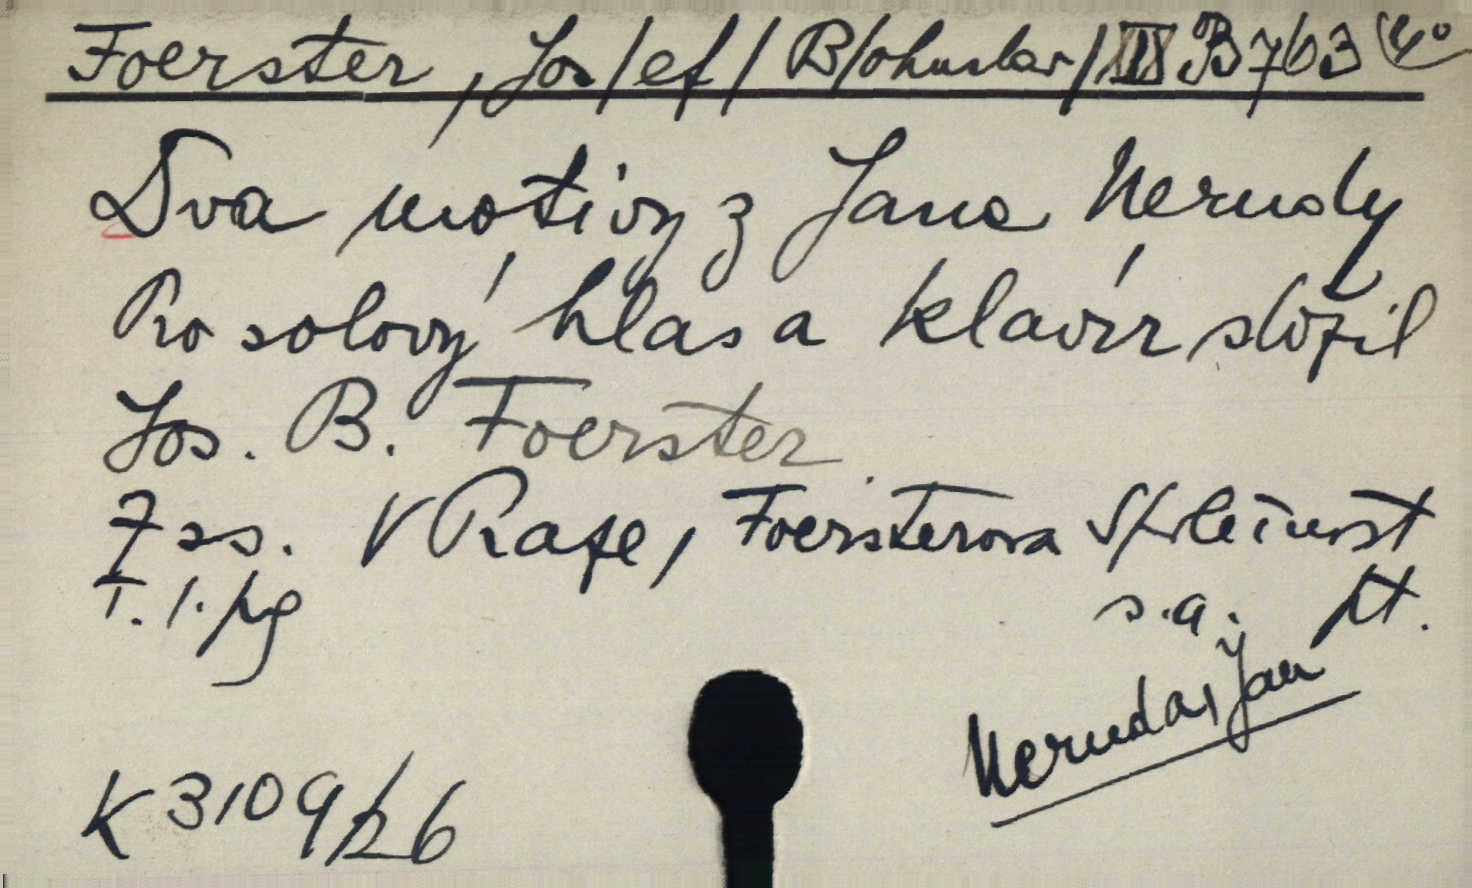 Foerster, Jos/ef/ B/ohuslav/ III B 763 4°
Dva motivy z Jana Nerudy
Pro solový hlas a klavír složil
Jos. B. Foerster.
7 ss. V Praze, Foersterova Společnost
T. 1. pg s.a. Pt.
Neruda, Jan
K 3109/26